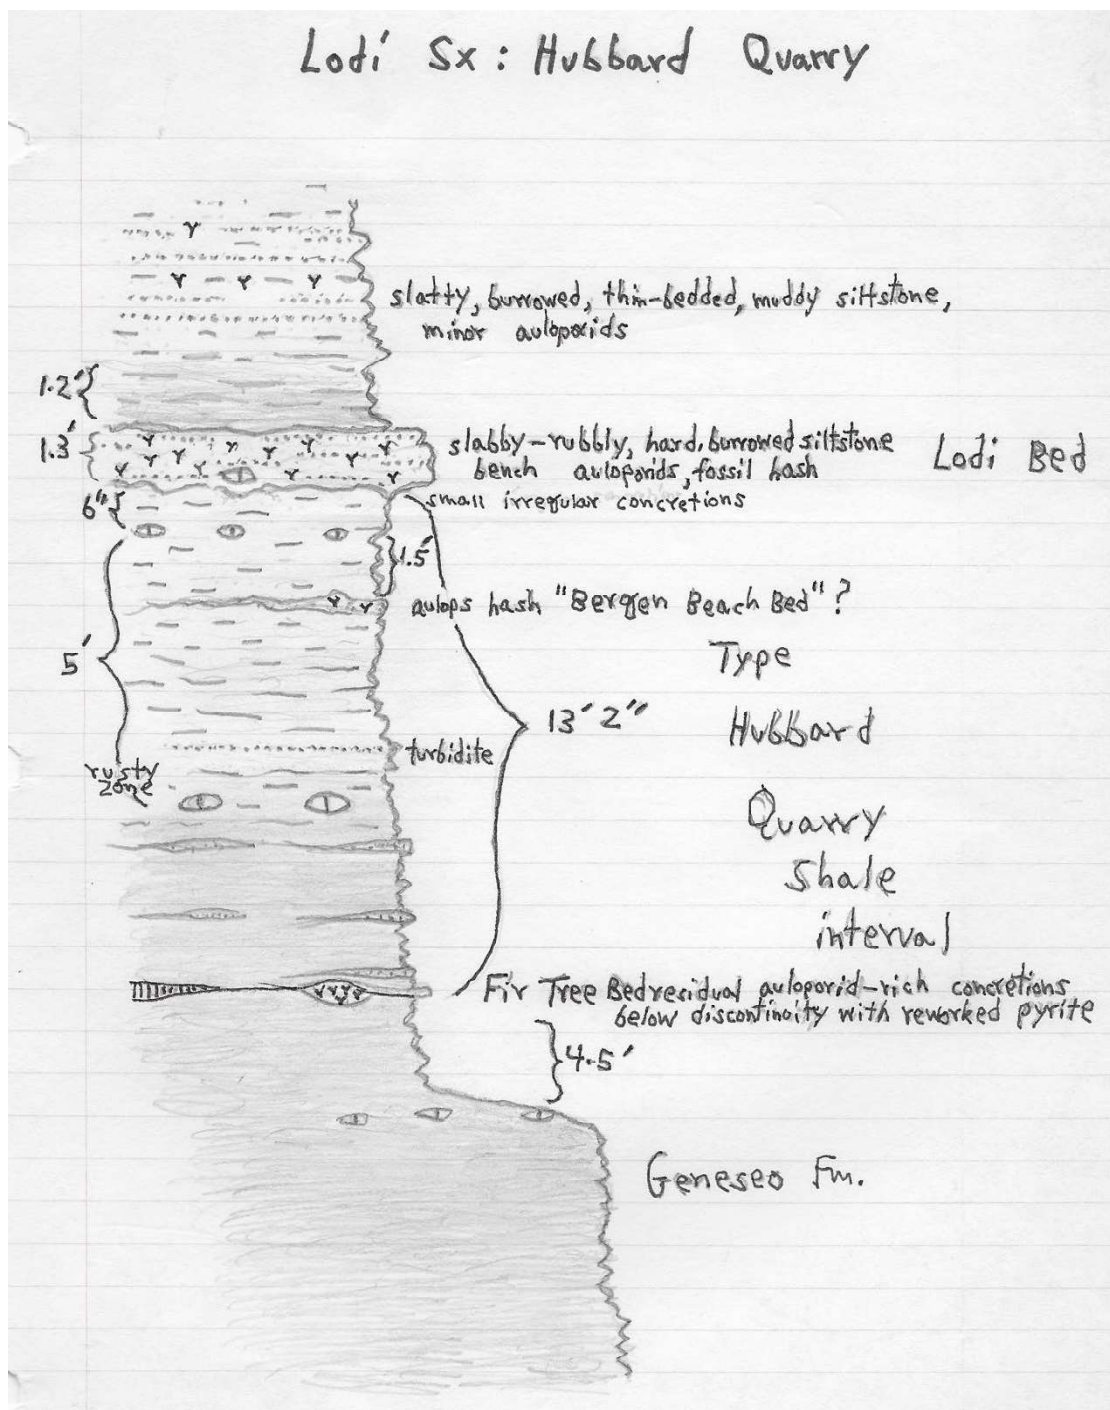 Lodi Sx: Hubbard Quarry
slatty, burrowed, thin-bedded, muddy siltstone,
minor auloporids
1.2'
1.3'
slabby-rubbly, hard, burrowed siltstone
bench auloporids, fossil hash
Lodi Bed
small irregular concretions
6"
1.5'
aulops hash "Bergen Beach Bed"?
5'
Type
Hubbard
Quarry
Shale
interval
13' 2"
turbidite
rusty
zone
Fir Tree Bed residual auloporid-rich concretions
below discontinuity with reworked pyrite
4.5'
Geneseo Fm.